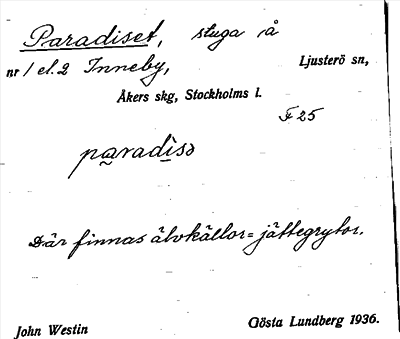 Paradiset, stuga å
nr 1 el. 2 Inneby, Ljusterö sn,
Åkers skg, Stockholms l.
F 25
paradisə
Där finnas älvkällor = jättegrytor.
John Westin Gösta Lundberg 1936.